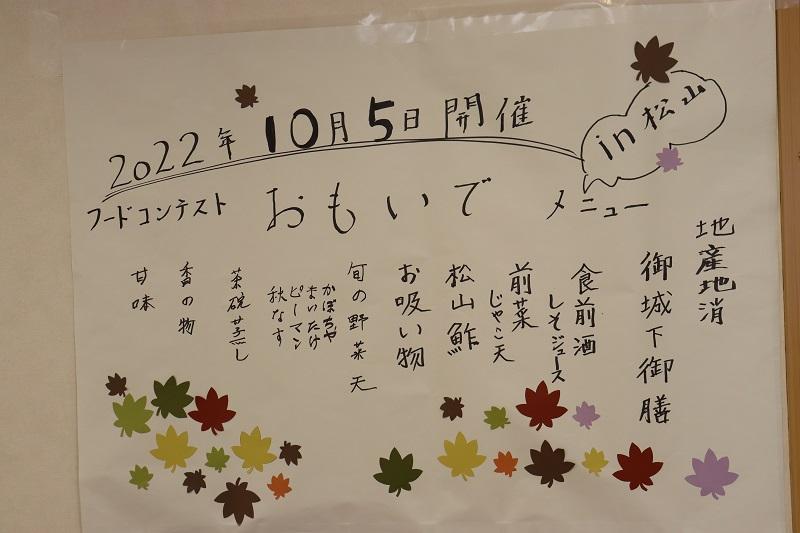 2022年 10月5日 開催
in 松山
フードコンテスト おもいで メニュー
地産地消
御城下御膳
食前酒
しそジュース
前菜
じゃこ天
松山鮓
お吸い物
旬の野菜天
かぼちゃ
まいたけ
ピーマン
秋なす
茶碗蒸し
香の物
甘味